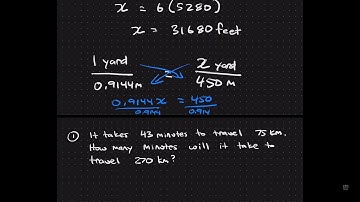 x = 6(5280)
x = 31680 feet
1 yard = x yard
0.9144m 450m
0.9144x = 450
0.914
① It takes 43 minutes to travel 75 km.
How many minutes will it take to
travel 270 km?